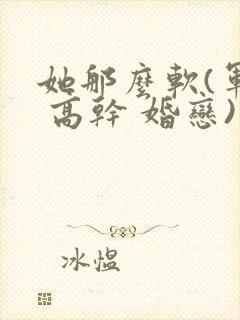 她那麼軟(軍
高幹 婚戀)
冰愠